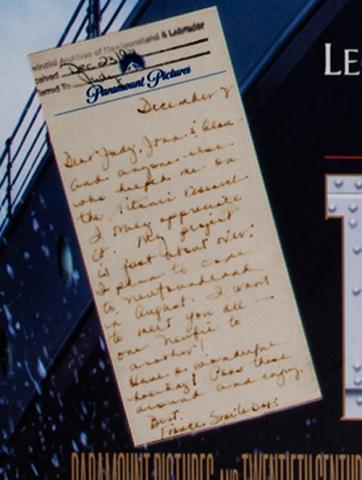 Provincial Archives of Newfoundland & Labrador
Received Dec 23/97
Referred To Judy
Paramount Pictures
December 8
Dear Judy, Joan & Alan -
and anyone else
who helped me on
the Titanic research.
I really appreciate
it. My project
is just about over.
I plan to come
to Newfoundland
in August. I want
to meet you all -
one Newfie to
another!
Have a wonderful
holiday! Pass these
around and enjoy.
Best,
LE
PARAMOUNT PICTURES AND TWENTIETH CENTUR